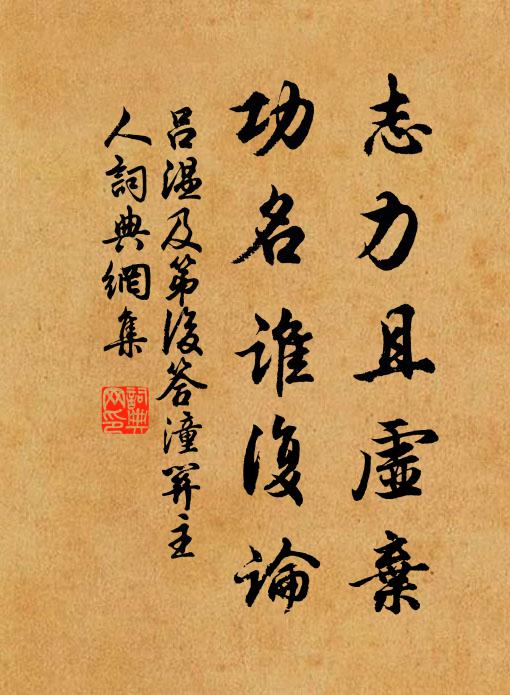 志力且虛棄
功名誰復論
呂溫及第後答潼關主
人詞典網集
詞典
网印